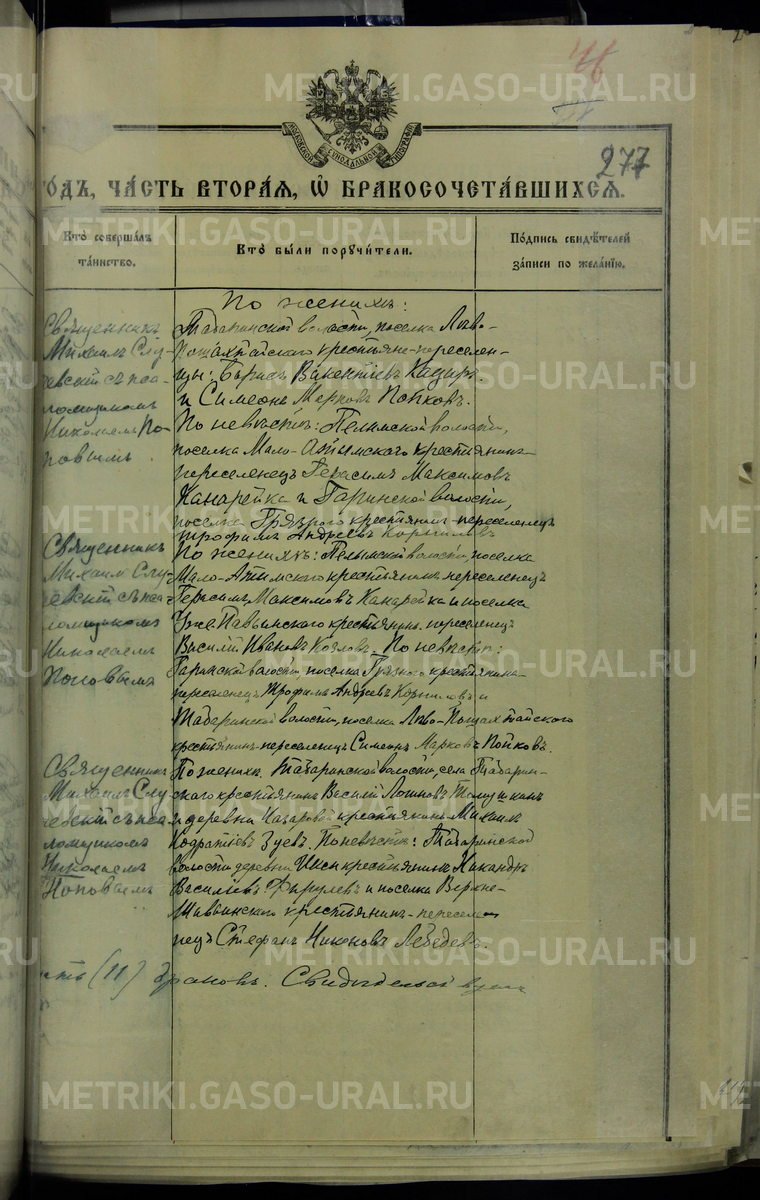 277
МОСКОВСКОЙ СѴНОДАЛЬНОЙ ТИПОГРАФІИ
ОДЪ, ЧАСТЬ ВТОРАЯ, Ѡ БРАКОСОЧЕТАВШИХСЯ.
Кто совершалъ таинство.
Кто были поручители.
Подпись свидѣтелей записи по желанію.
Священникъ
Михаилъ Слу-
чевскій съ пса-
ломщикомъ
Николаемъ По-
повымъ.
По женихѣ:
Табаринской волости, поселка Лово-
крестьяне-переселен-
цы: Борисъ Викентіевъ
и Симеонъ Марковъ Попковъ.
По невѣстѣ: Пелымской волости,
поселка Мало-Атымского крестьянинъ-
переселенецъ Герасимъ Максимовъ
Канарейка и Гаринской волости,
поселка Грязного крестьянинъ-переселенецъ
Трофимъ Андреевъ Корниловъ
Священникъ
Михаил Слу-
чевскій съ пса-
ломщикомъ
Николаемъ
Поповымъ
По женихѣ: Пелымской волости, поселка
Мало-Атымского крестьянинъ переселенецъ
Герасимъ Максимовъ Канарейка и поселка
крестьянинъ переселенецъ
Василій Ивановъ Козловъ. По невѣстѣ:
Гаринской волости, поселка Грязного крестьянинъ-
переселенецъ Трофимъ Андреевъ Корниловъ и
Табаринской волости, поселка Лово-
крестьянин-переселенецъ Симеонъ Марковъ Попковъ.
Священникъ
Михаилъ Слу-
чевскій съ пса-
ломщикомъ
Николаемъ
Поповымъ
По женихѣ: Табаринской волости, села Табарин-
ского крестьянинъ Василій
и деревни Назаровой крестьянинъ Михаилъ
Кодратіевъ Зуевъ. По невѣстѣ: Табаринской
волости деревни крестьянинъ Никандръ
Василіевъ и поселка Верхне-
крестьянинъ-переселе-
нецъ Стефанъ Никоновъ Лебедевъ.
(11) браковъ.
METRIKI.GASO-URAL.RU